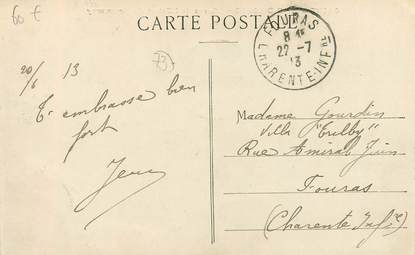 60 €
CARTE POSTALE
FOURAS
8 15
22 -7
13
CHARENTE-INFRE
73
20/6 13
T'embrasse bien
fort
Jean
Madame Gourdin
Villa
Rue Amiral Juin
Fouras
(Charente Infre)